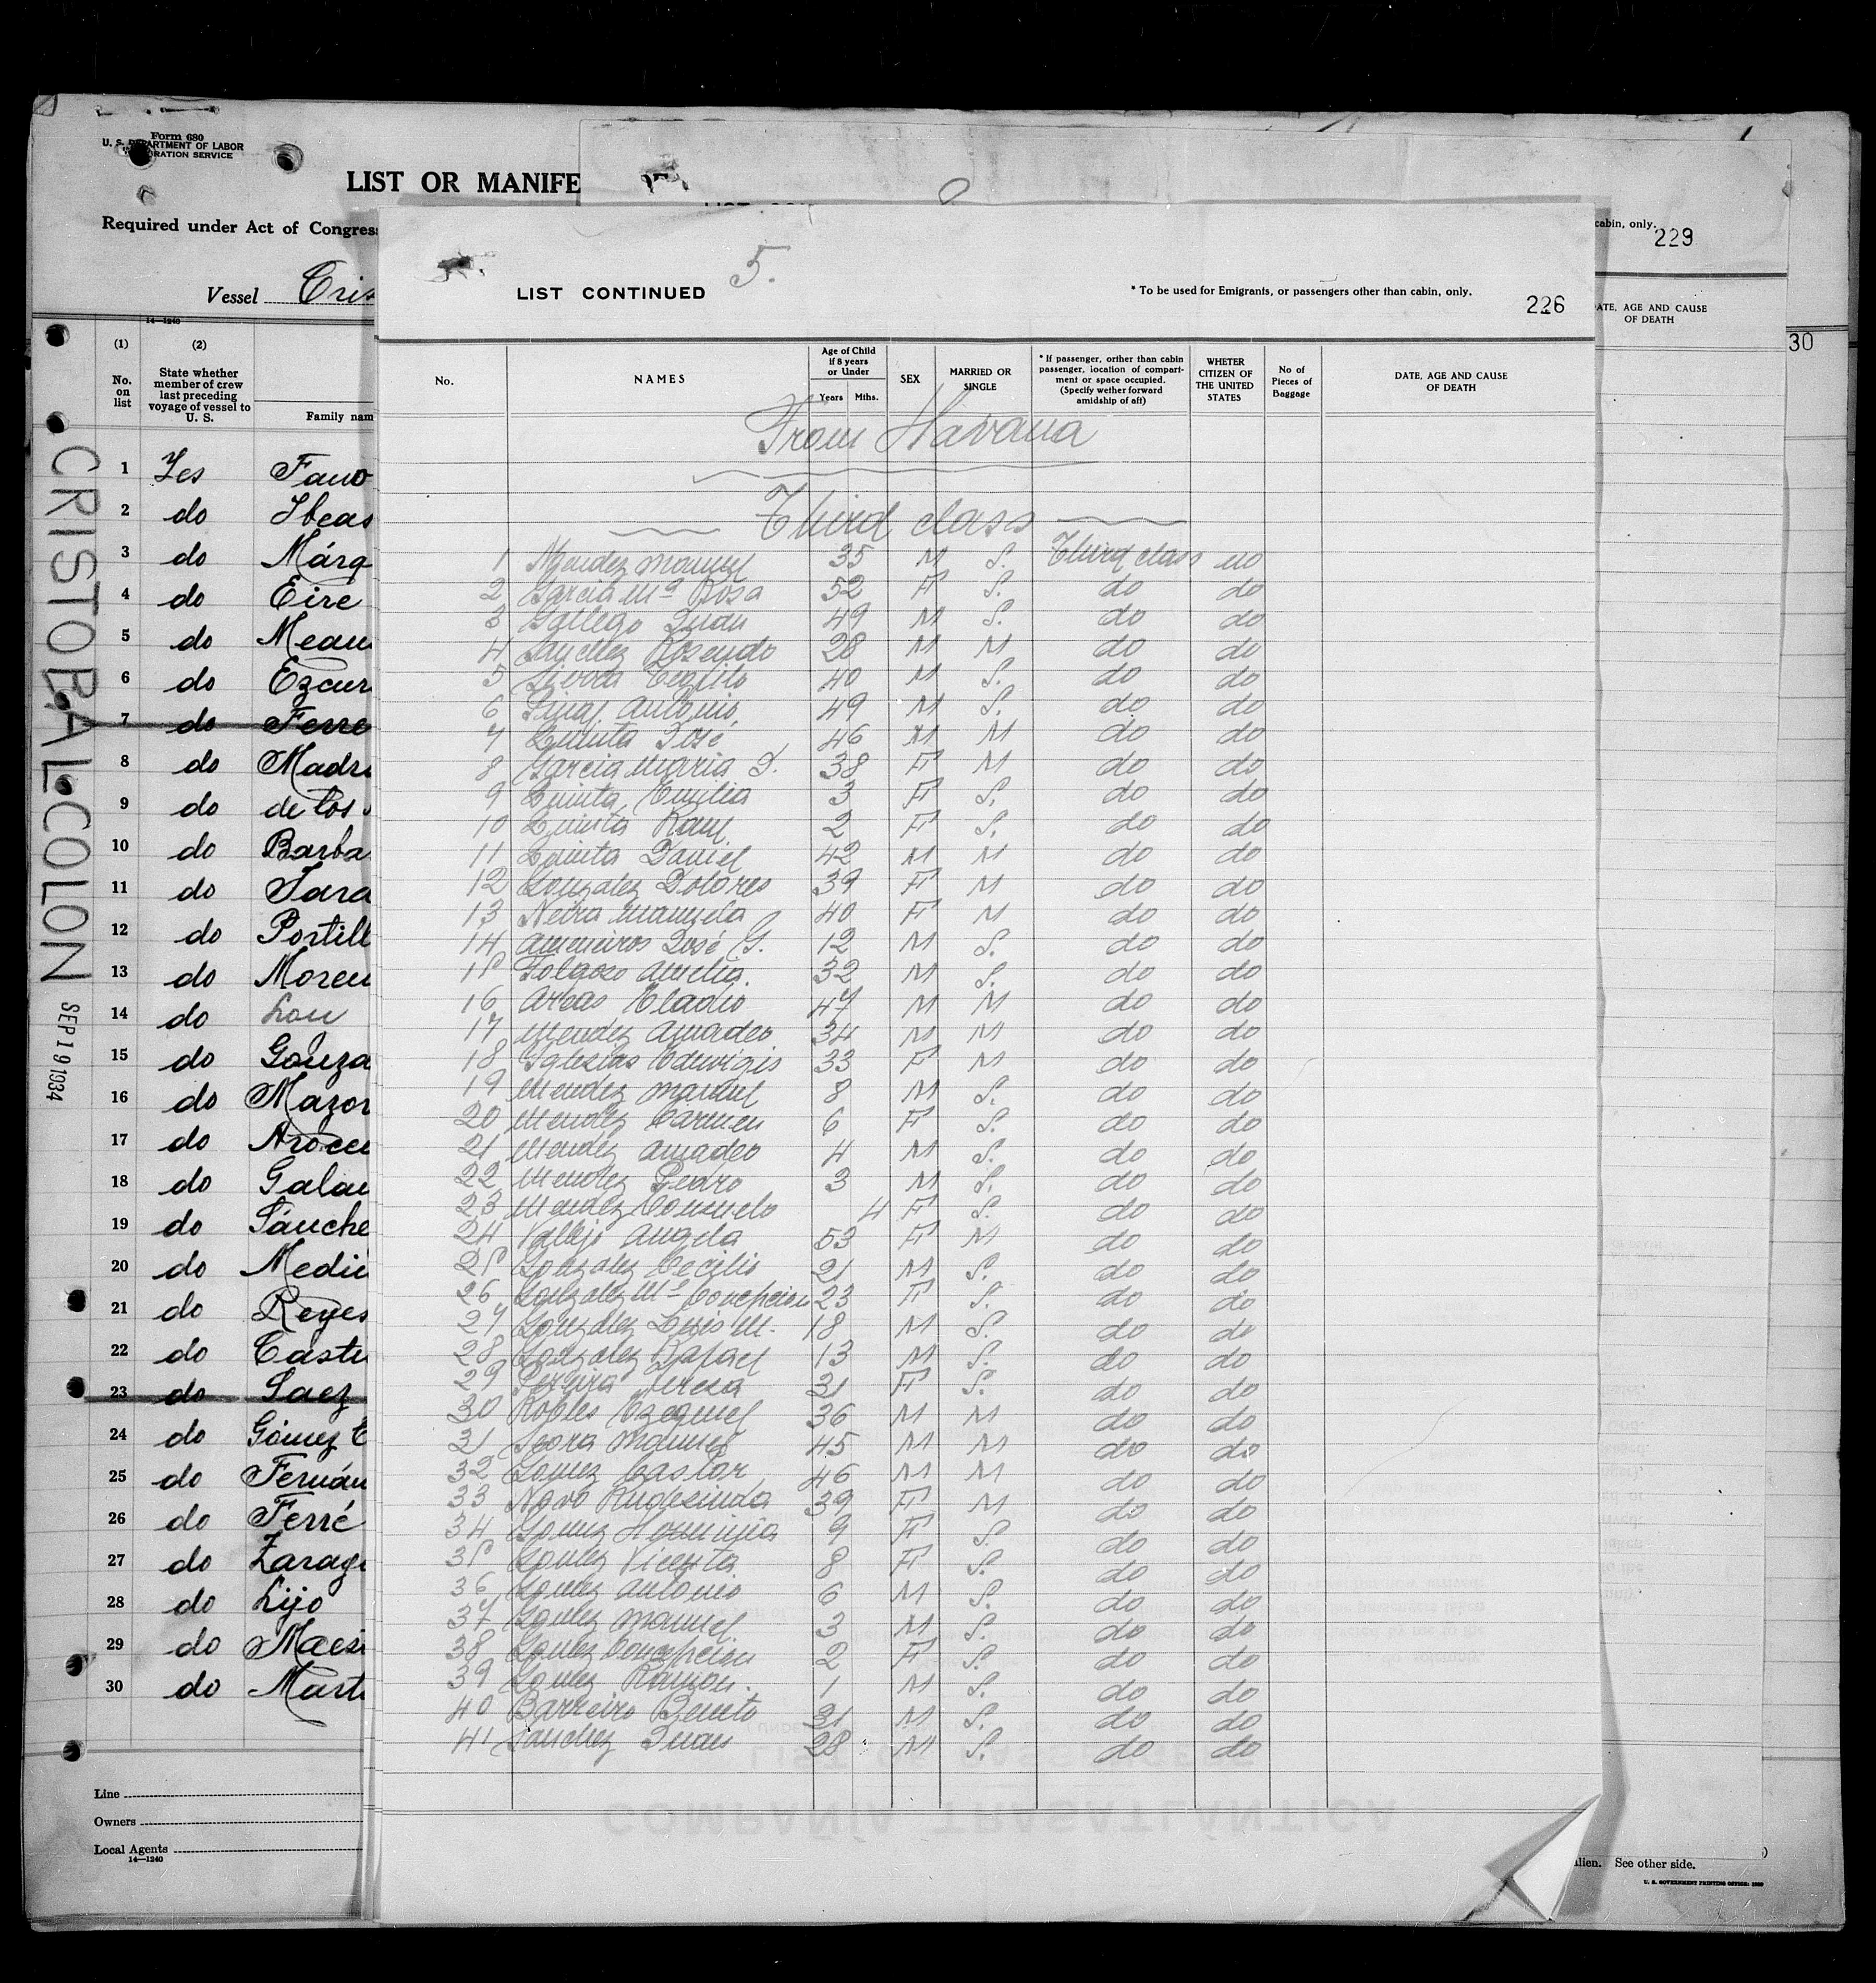 Form 680
U. S. DEPARTMENT OF LABOR
LIST OR MANIFE
Required under Act of Congress
Vessel Cris
14—1240
(1) (2)
No. on list
State whether member of crew last preceding voyage of vessel to U. S.
Family nam
1 Yes Fano
2 do Ibeas
3 do Márq
4 do Eire
5 do
6 do Ezcur
7 do Ferre
8 do Madri
9 do de los
10 do Barba
11 do
12 do Portill
13 do Moren
14 do Lou
15 do Gonza
16 do Mazor
17 do Arocen
18 do Galan
19 do Sánche
20 do Medin
21 do Reyes
22 do Castu
23 do Saez
24 do Gómez
25 do Fernán
26 do Ferré
27 do Zarag
28 do Lijo
29 do
30 do Marti
Line
Owners
Local Agents
14—1240
CRISTOBAL COLON
SEP 19 1934
5.
LIST CONTINUED
* To be used for Emigrants, or passengers other than cabin, only.
226
No.
NAMES
Age of Child if 8 years or Under
Years Mths.
SEX
MARRIED OR SINGLE
* If passenger, orther than cabin passenger, location of compartment or space occupied. (Specify wether forward amidship of aft)
WHETER CITIZEN OF THE UNITED STATES
No of Pieces of Baggage
DATE, AGE AND CAUSE OF DEATH
From Havana
Third class
1 Mendez Manuel 35 M S. Third class no
2 Garcia Mª Rosa 52 F S. do do
3 Gallego Juan 49 M S. do do
4 Sanchez Rosendo 28 M M do do
5 40 M S. do do
6 Antonio 49 M S. do do
7 Quinta José 46 M M do do
8 Garcia Maria D. 38 F M do do
9 Quinta Emilia 3 F S. do do
10 Quinta Raul 2 F S. do do
11 Quinta Daniel 42 M M do do
12 Gonzalez Dolores 39 F M do do
13 Neira Manuela 40 F M do do
14 Ameneiros José G. 12 M S. do do
15 Folgoso Amelia 32 M S. do do
16 Areas Eladio 47 M M do do
17 Mendez Amadeo 34 M M do do
18 Iglesias Eduvigis 33 F M do do
19 Mendez Manuel 8 M S. do do
20 Mendez Carmen 6 F S. do do
21 Mendez Amadeo 4 M S. do do
22 Mendez Pedro 3 M S. do do
23 Mendez Consuelo 4 F S. do do
24 Vallejo Angela 53 F M do do
25 Gonzalez Cecilio 21 M S. do do
26 Gonzalez Mª Concepcion 23 F S. do do
27 Gonzalez Luis M. 18 M S. do do
28 Gonzalez Rafael 13 M S. do do
29 Pereira Teresa 31 F S. do do
30 Robles Ezequiel 36 M M do do
31 Manuel 45 M M do do
32 Gomez Castor 46 M M do do
33 Novo Rudesinda 39 F M do do
34 Gomez Herminia 9 F S. do do
35 Gomez Vicenta 8 F S. do do
36 Gomez Antonio 6 M S. do do
37 Gomez Manuel 3 M S. do do
38 Gomez Concepcion 2 F S. do do
39 Gomez Ramon. 1 M S. do do
40 Barreiro Benito 31 M S. do do
41 Sanchez Juan 28 M S. do do
COMPAÑIA TRASATLANTICA
cabin, only.
229
ATE, AGE AND CAUSE OF DEATH
30
alien. See other side.
U. S. GOVERNMENT PRINTING OFFICE: